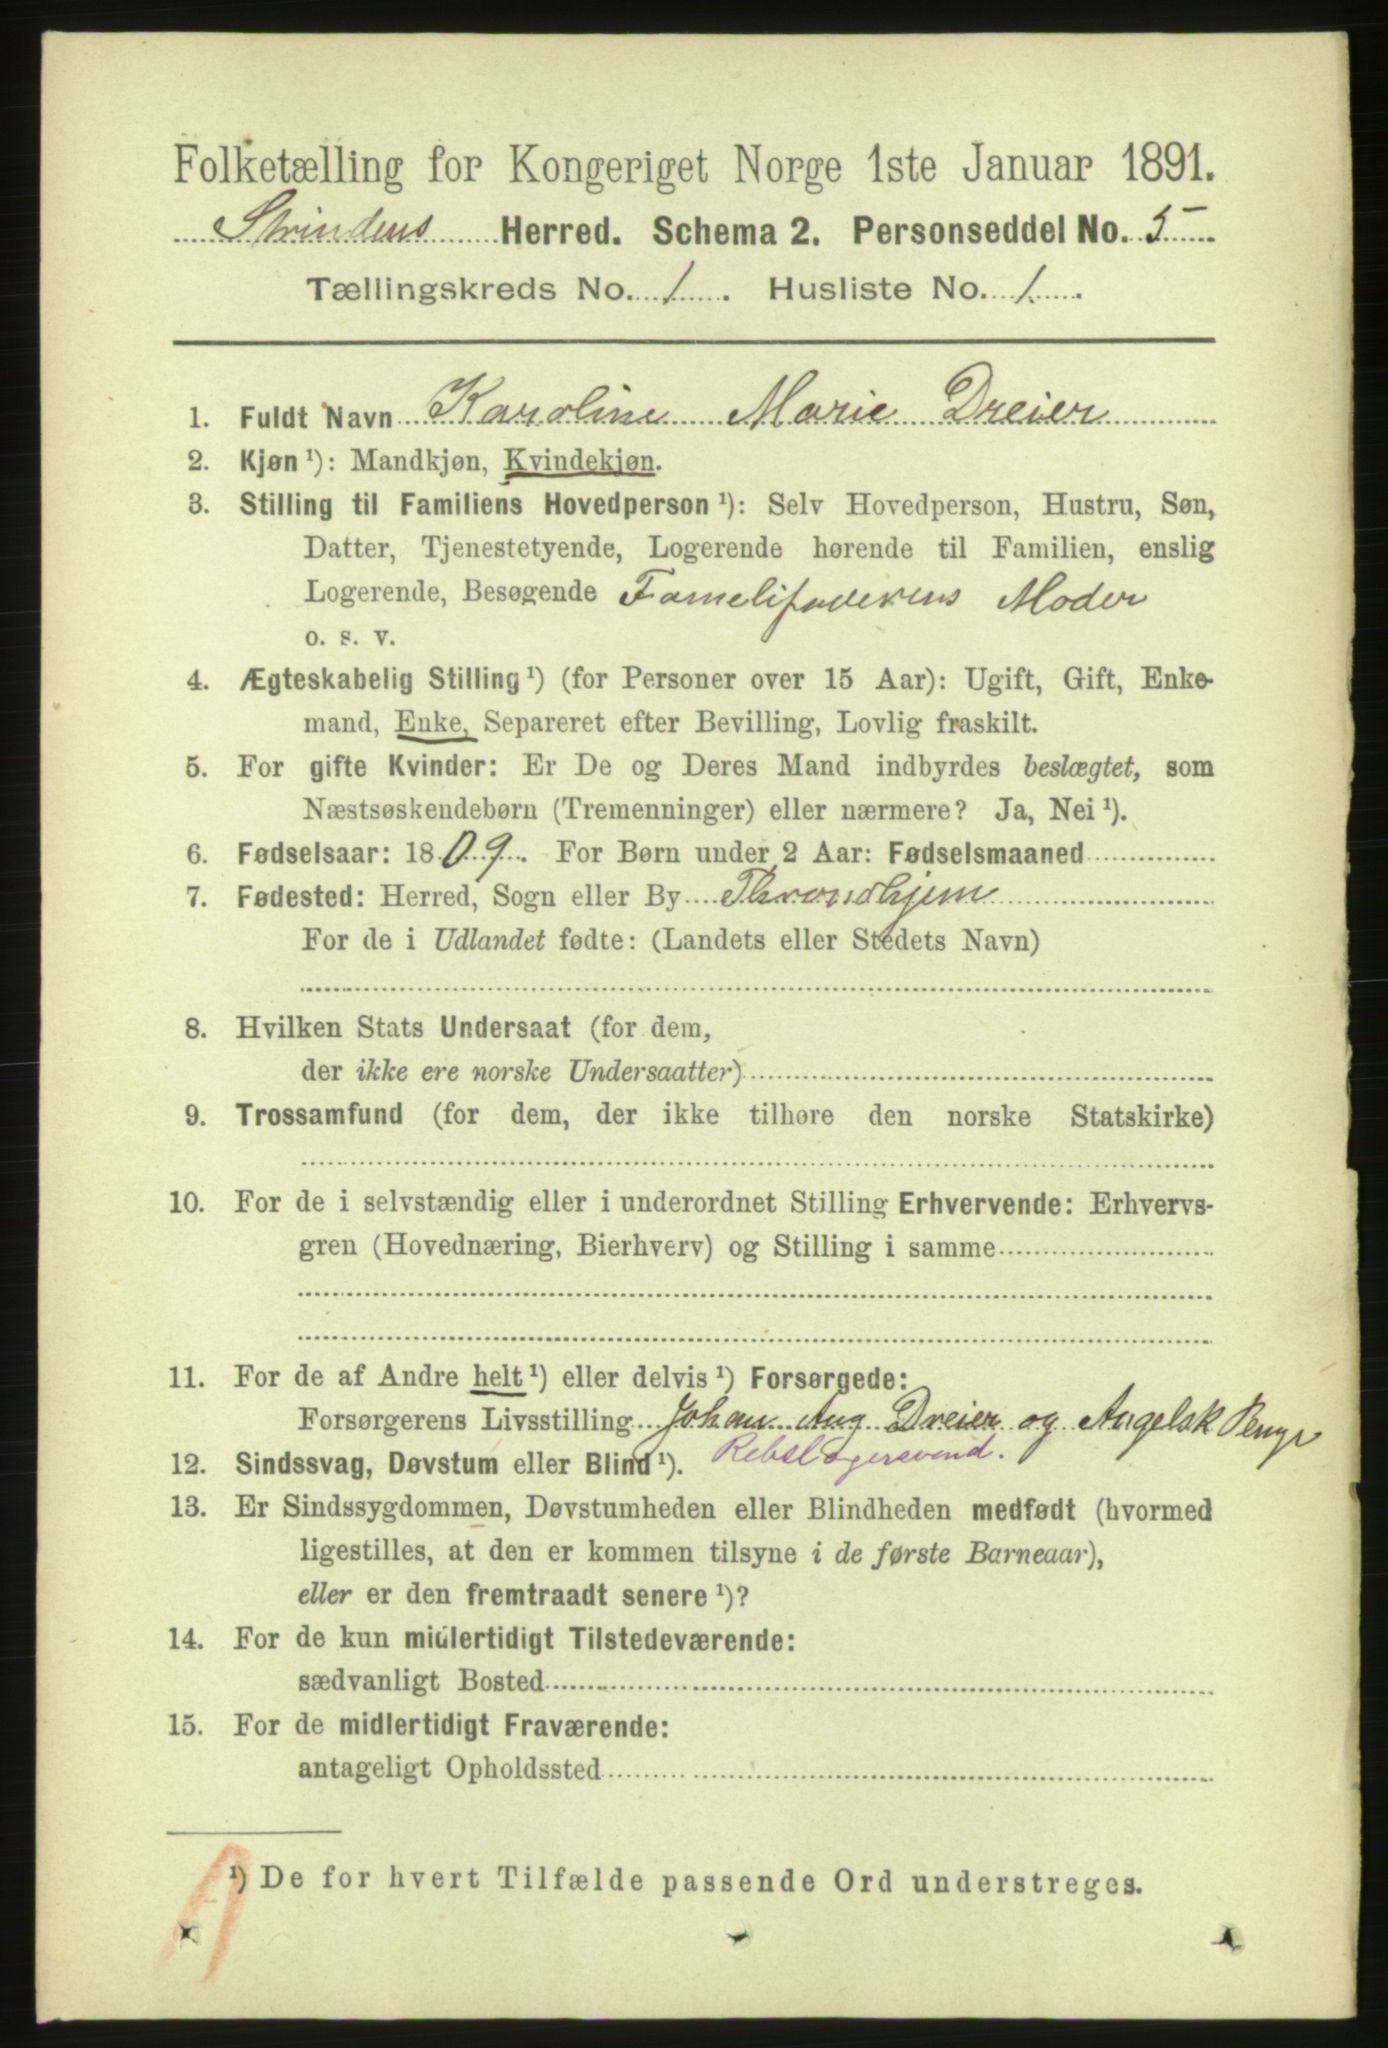 Folketælling for Kongeriget Norge 1ste Januar 1891.
Strindens Herred. Schema 2. Personseddel No. 5
Tællingskreds No. 1. Husliste No. 1.
1. Fuldt Navn Karoline Marie Dreier
2. Kjøn ¹): Mandkjøn, Kvindekjøn.
3. Stilling til Familiens Hovedperson ¹): Selv Hovedperson, Hustru, Søn,
Datter, Tjenestetyende, Logerende hørende til Familien, enslig
Logerende, Besøgende Famelifaderens Moder
o. s. v.
4. Ægteskabelig Stilling ¹) (for Personer over 15 Aar): Ugift, Gift, Enke-
mand, Enke, Separeret efter Bevilling, Lovlig fraskilt.
5. For gifte Kvinder: Er De og Deres Mand indbyrdes beslægtet, som
Næstsøskendebørn (Tremenninger) eller nærmere? Ja, Nei ¹).
6. Fødselsaar: 1809. For Børn under 2 Aar: Fødselsmaaned
7. Fødested: Herred, Sogn eller By Throndhjem
For de i Udlandet fødte: (Landets eller Stedets Navn)
8. Hvilken Stats Undersaat (for dem,
der ikke ere norske Undersaatter)
9. Trossamfund (for dem, der ikke tilhøre den norske Statskirke)
10. For de i selvstændig eller i underordnet Stilling Erhvervende: Erhvervs-
gren (Hovednæring, Bierhverv) og Stilling i samme
11. For de af Andre helt ¹) eller delvis ¹) Forsørgede:
Forsørgerens Livsstilling Johan Aug Dreier og Angelsk
12. Sindssvag, Døvstum eller Blind ¹). Rebslagersvend.
13. Er Sindssygdommen, Døvstumheden eller Blindheden medfødt (hvormed
ligestilles, at den er kommen tilsyne i de første Barneaar),
eller er den fremtraadt senere ¹)?
14. For de kun midlertidigt Tilstedeværende:
sædvanligt Bosted
15. For de midlertidigt Fraværende:
antageligt Opholdssted
¹) De for hvert Tilfælde passende Ord understreges.